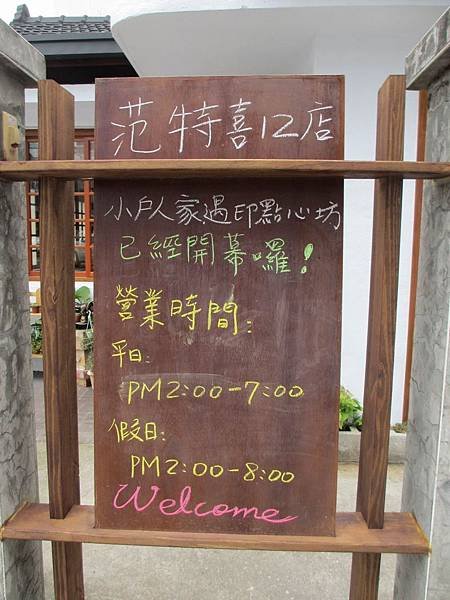 范特喜12店
小戶人家遇印點心坊
已經開幕囉！
營業時間：
平日：
PM2:00-7:00
假日：
PM2:00-8:00
Welcome